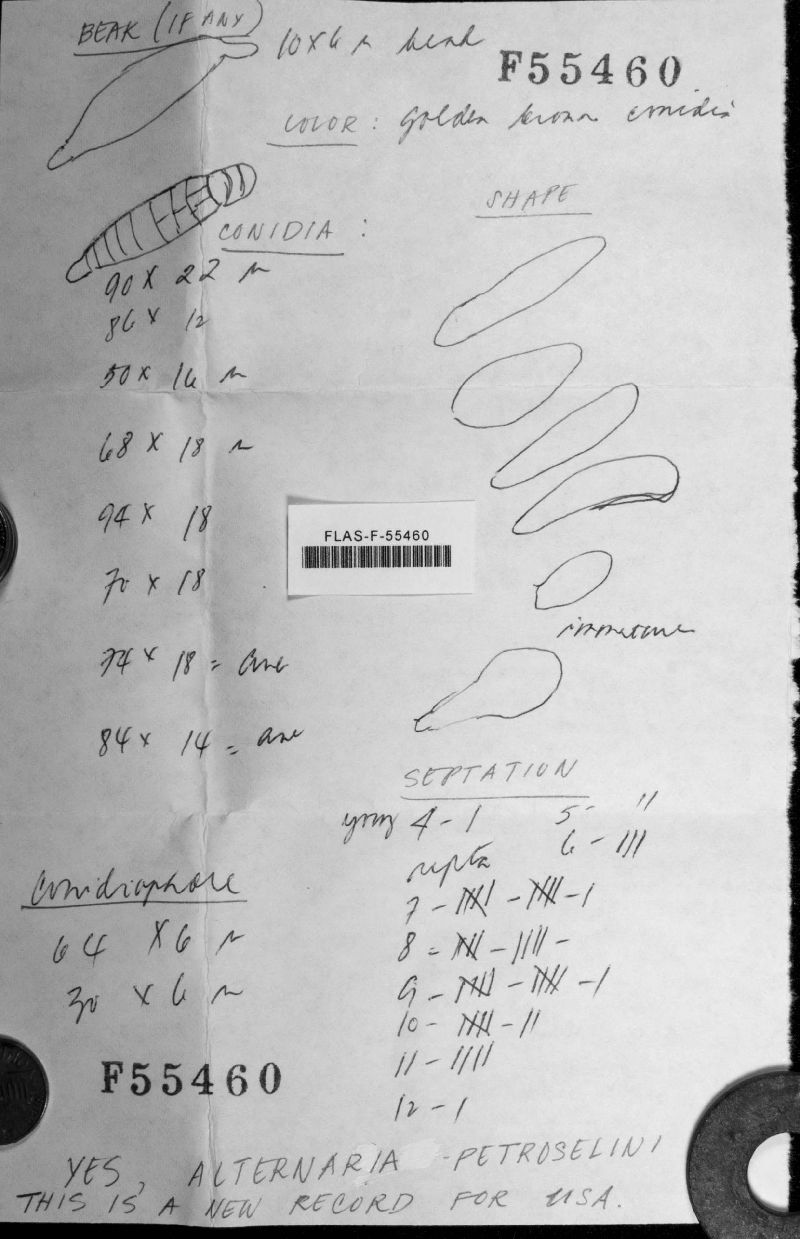 BEAK (IF ANY)
10 x 6 µ beak
F55460
COLOR : Golden brown conidia
SHAPE
CONIDIA :
90 x 22 µ
86 x 12
50 x 16 µ
68 x 18 µ
94 x 18
FLAS-F-55460
70 x 18
immature
74 x 18 = ave
84 x 14 = ave
SEPTATION
young 4 - 1 5 - 11
septa 6 - 111
7 - 𝍸 - 𝍸 - 1
8 - 𝍸 - 1111 -
9 - 𝍸 - 𝍸 - 1
10 - 𝍸 - 11
11 - 1111
12 - 1
Conidiophore
64 x 6 µ
30 x 6 µ
F55460
YES, ALTERNARIA PETROSELINI
THIS IS A NEW RECORD FOR USA.